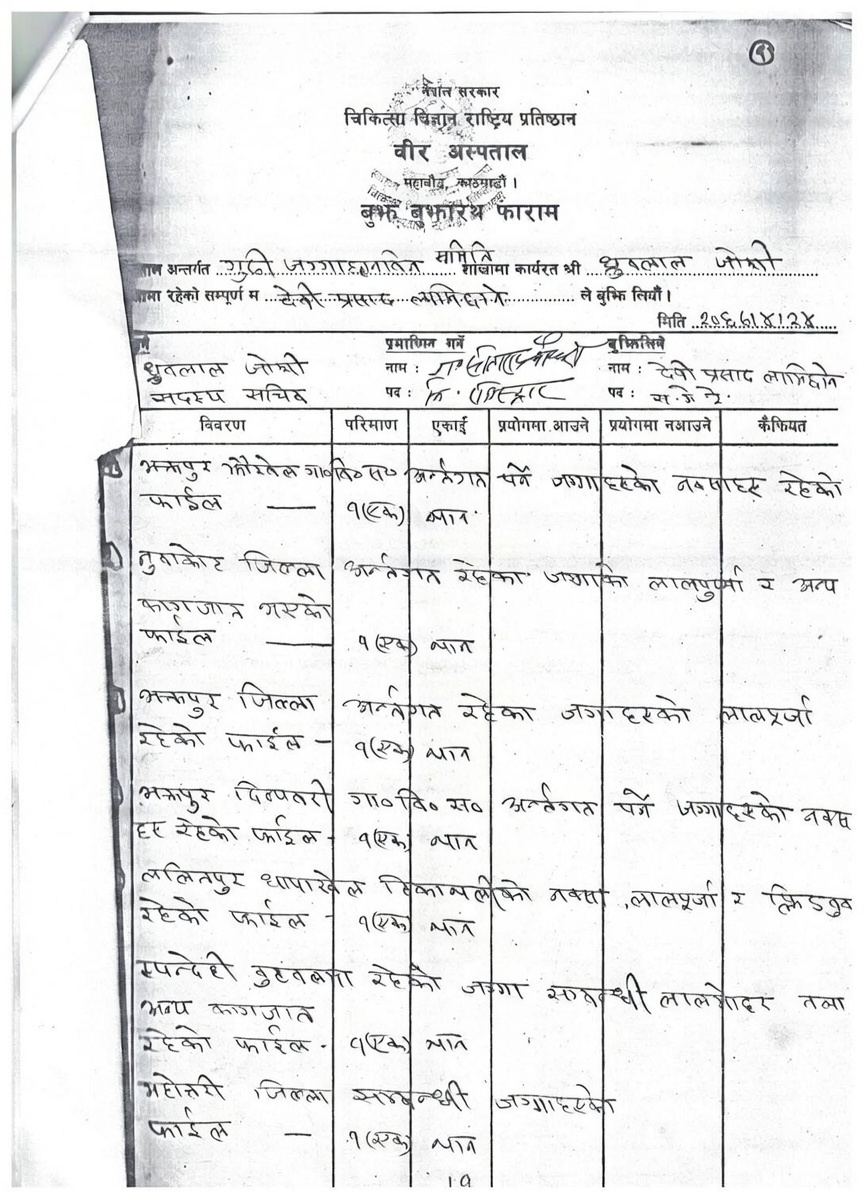 १
नेपाल सरकार
चिकित्सा विज्ञान राष्ट्रिय प्रतिष्ठान
वीर अस्पताल
महाबौद्ध, काठमाडौं ।
बुझ बुझारथ फाराम
ताल अन्तर्गत गुठी जग्गा समिति शाखामा कार्यरत श्री ध्रुवलाल जोशी
मा रहेको सम्पूर्ण म देवी प्रसाद लामिछाने ले बुझि लियौं ।
मिति २०६७।४।२४
प्रमाणित गर्ने बुझिलिने
ध्रुवलाल जोशी नाम : नाम : देवी प्रसाद लामिछाने
सदस्य सचिव पद : पद :
विवरण परिमाण एकाई प्रयोगमा आउने प्रयोगमा नआउने कैफियत
भक्तपुर झौखेल गा०वि०स० अर्न्तगत पर्ने जग्गाहरुको नक्साहरु रहेको
फाईल — १(एक) थान
नुवाकोट जिल्ला अर्न्तगत रहेका जग्गाको लालपुर्जा र अन्य
कागजात भएको
फाईल — १(एक) थान
भक्तपुर जिल्ला अर्न्तगत रहेका जग्गाहरुको लालपूर्जा
रहेको फाईल - १(एक) थान
भक्तपुर गा०वि०स० अर्न्तगत पर्ने जग्गाहरुको नक्सा
हरु रहेको फाईल - १(एक) थान
ललितपुर धापाखेल को नक्सा, लालपूर्जा र फिल्डबुक
रहेको फाईल - १(एक) थान
रुपन्देही बुटवलमा रहेको जग्गा सम्बन्धी लालमोहर तथा
अन्य कागजात
रहेको फाईल - १(एक) थान
महोत्तरी जिल्ला सम्बन्धी जग्गाहरुको
फाईल — १(एक) थान